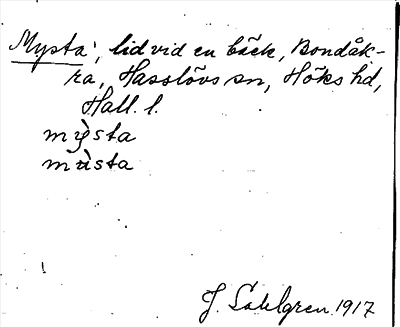 Mysta, lid vid en bäck, Bondåk-
ra, Hasslövs sn, Höks hd,
Hall. l.
mỳsta
mùsta
J. Sahlgren 1917